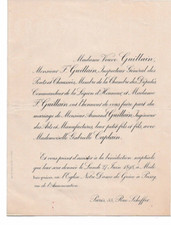 Madame Veuve Guillain,
Monsieur F. Guillain, Inspecteur Général des
Ponts et Chaussées, Membre de la Chambre des Députés,
Commandeur de la Légion d'Honneur, et Madame
F. Guillain ont l'honneur de vous faire part du
mariage de Monsieur Guillain, Ingénieur
des Arts et Manufactures, leur petit-fils et fils, avec
Mademoiselle Gabrielle Captain.
Et vous prient d'assister à la bénédiction nuptiale
qui leur sera donnée le Lundi 27 Juin 1898, à Midi
très précis en l'Église Notre-Dame de Grâce de Passy
rue de l'Annonciation.
Paris, Rue Scheffer.